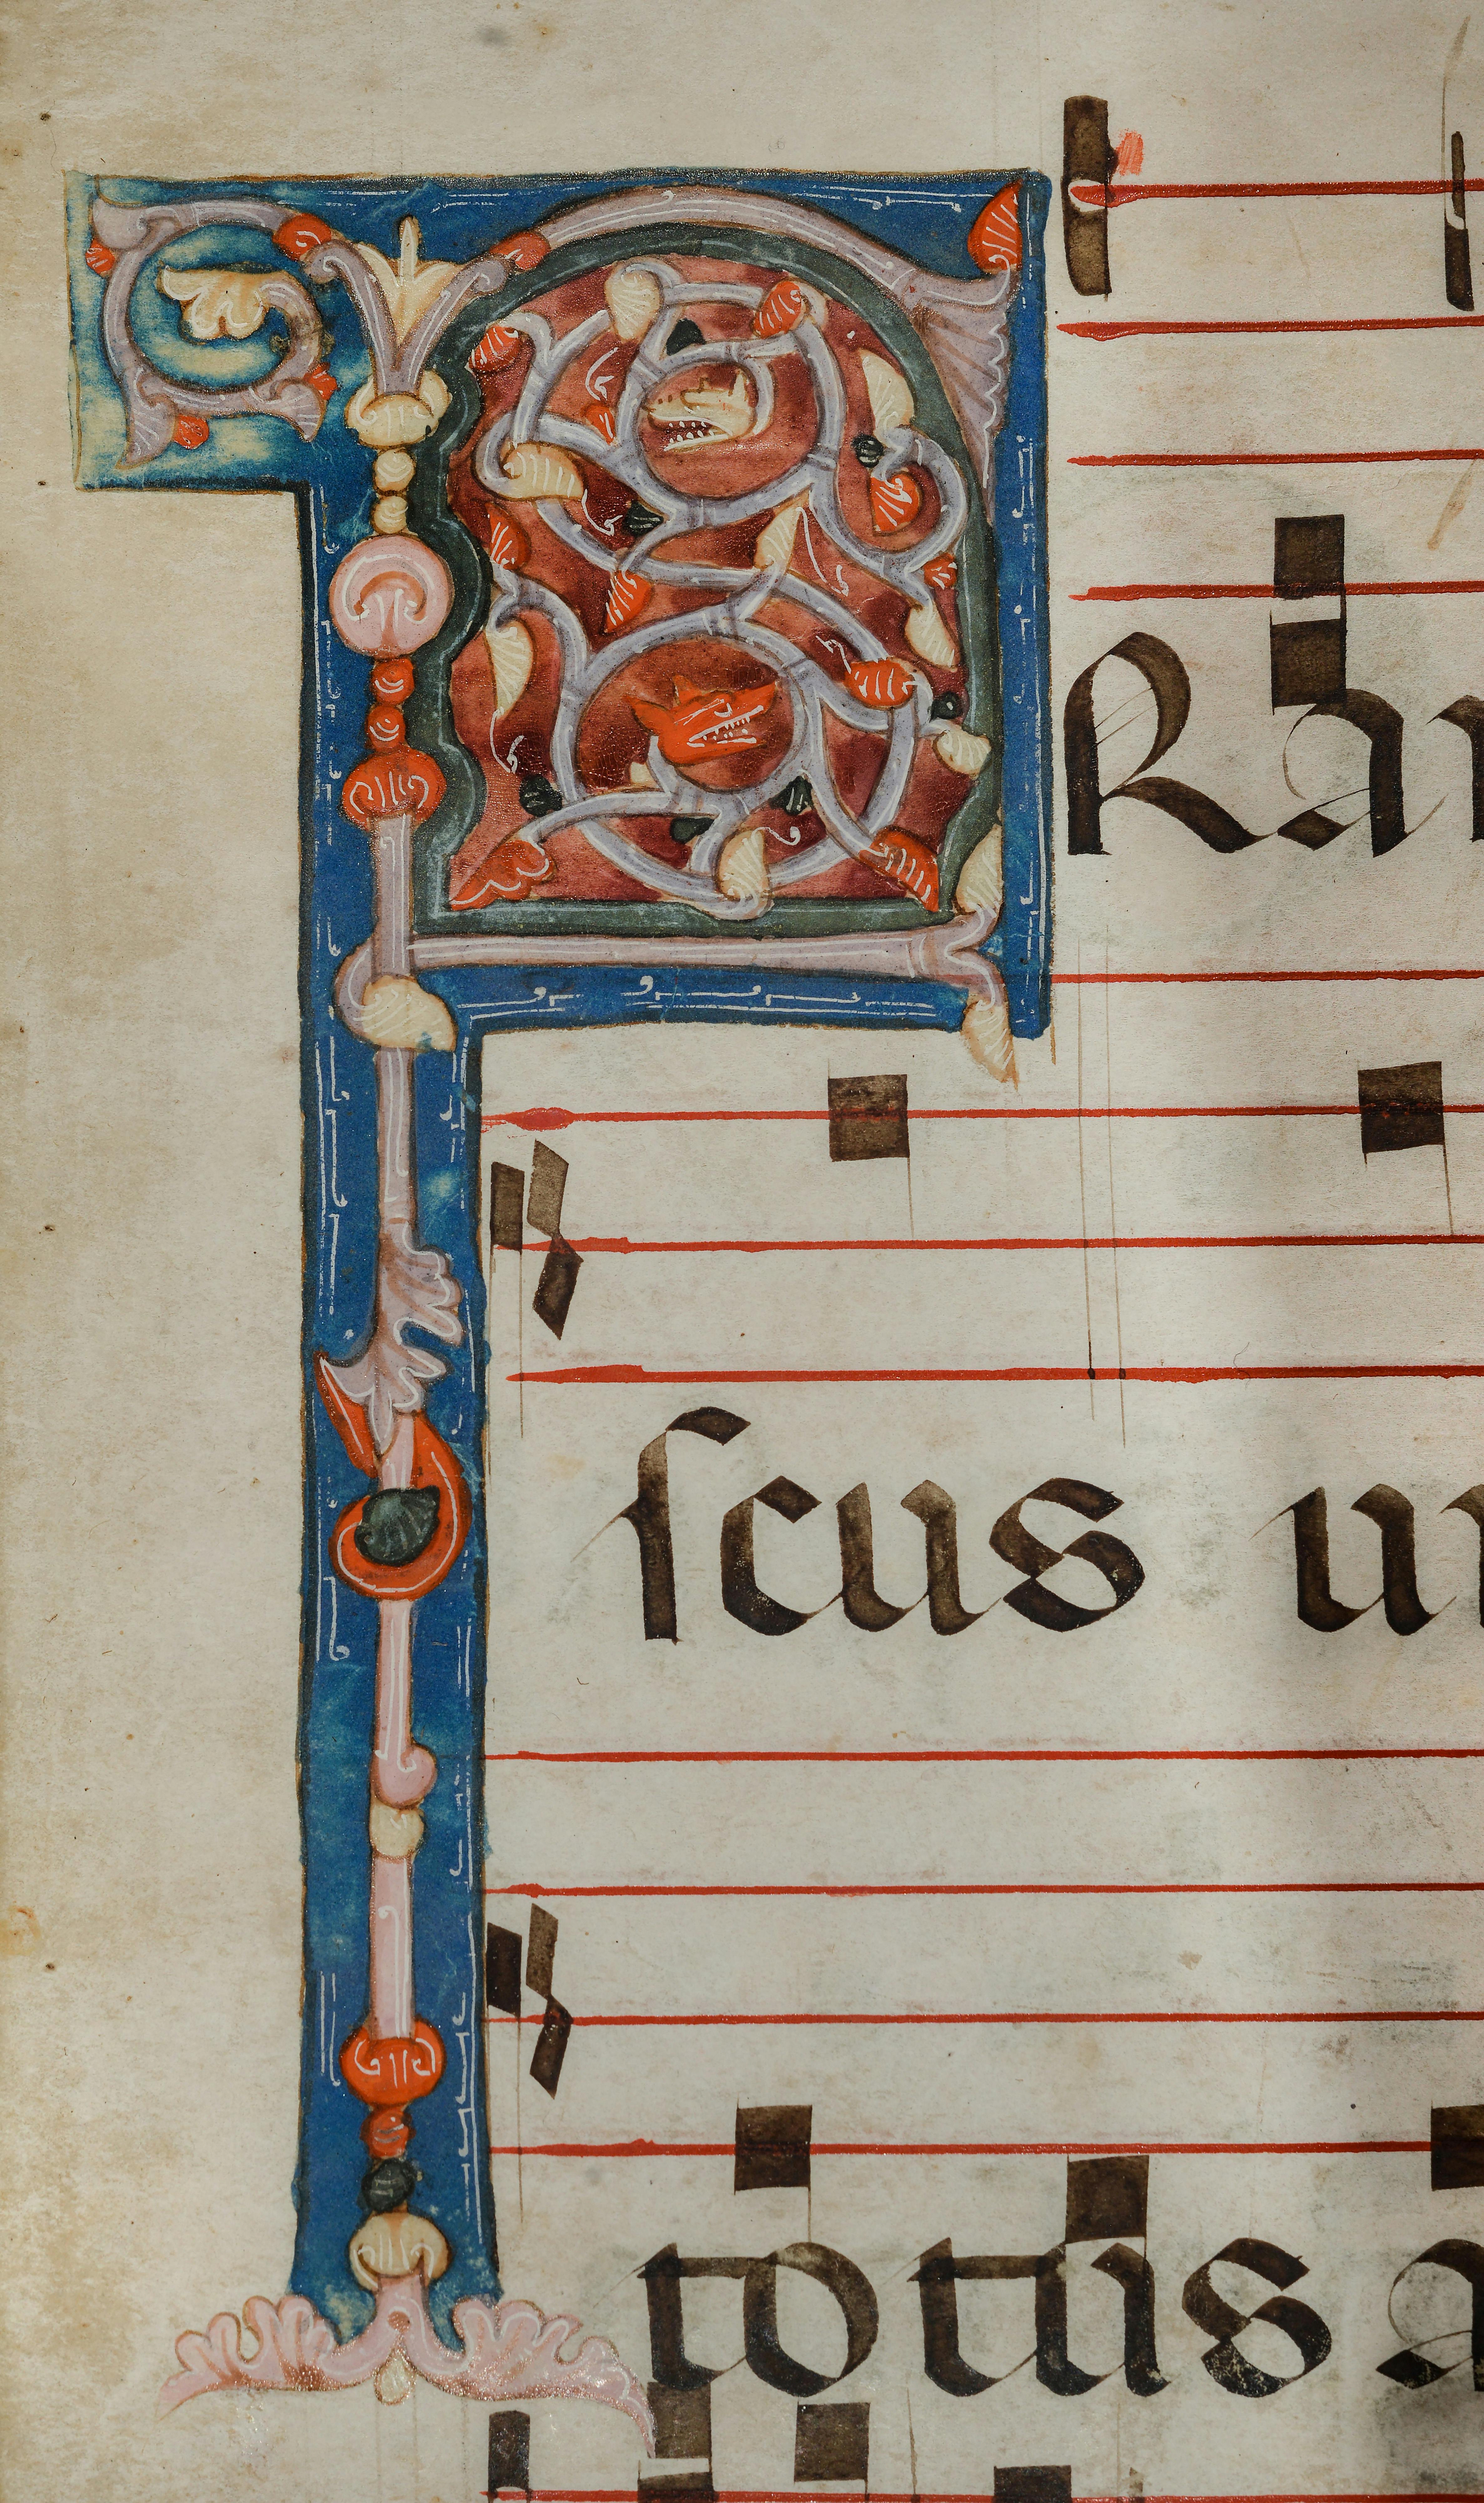 FRan
ſcus ui
totus a